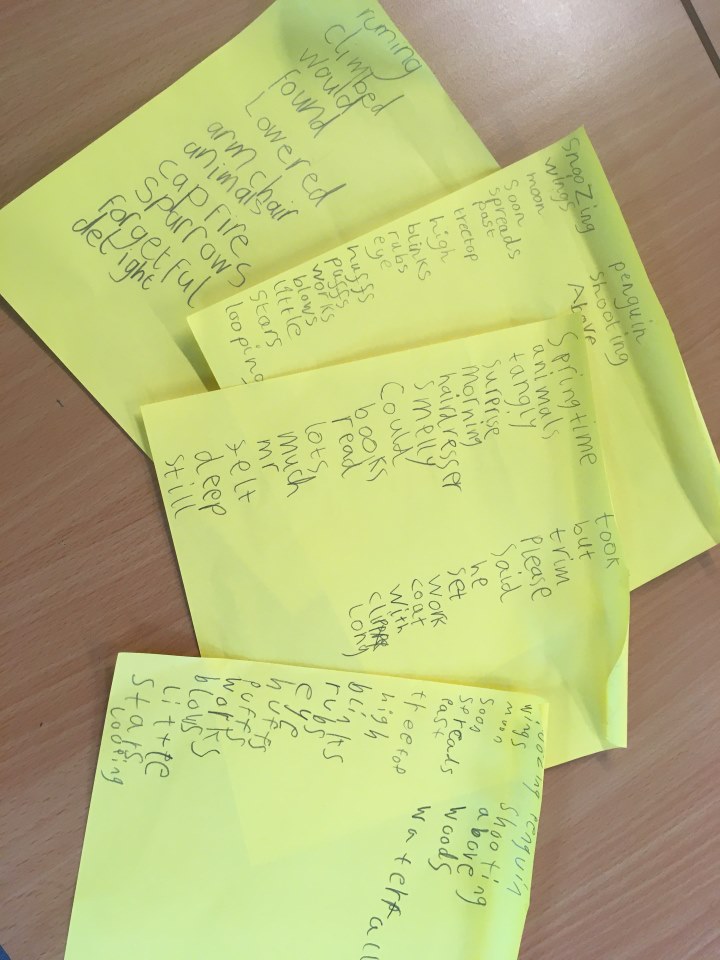 climbed
would
found
Lowered
arm chair
animals
cap fire
Sparrows
forgetful
delight
SnooZing
wings
moon
Soon
spreads
past
treetop
high
blinks
rubs
eye
huffs
puffs
works
blows
little
Stars
looping
penguin
shooting
Above
Springtime
animals
tangly
surprise
morning
hairdresser
smelly
Could
books
read
lots
much
mr
felt
deep
still
took
but
trim
please
said
he
set
work
coat
with
long
penguin
wings
soon
spreads
past
treetop
high
bli
eye
blows
shooting
above
woods